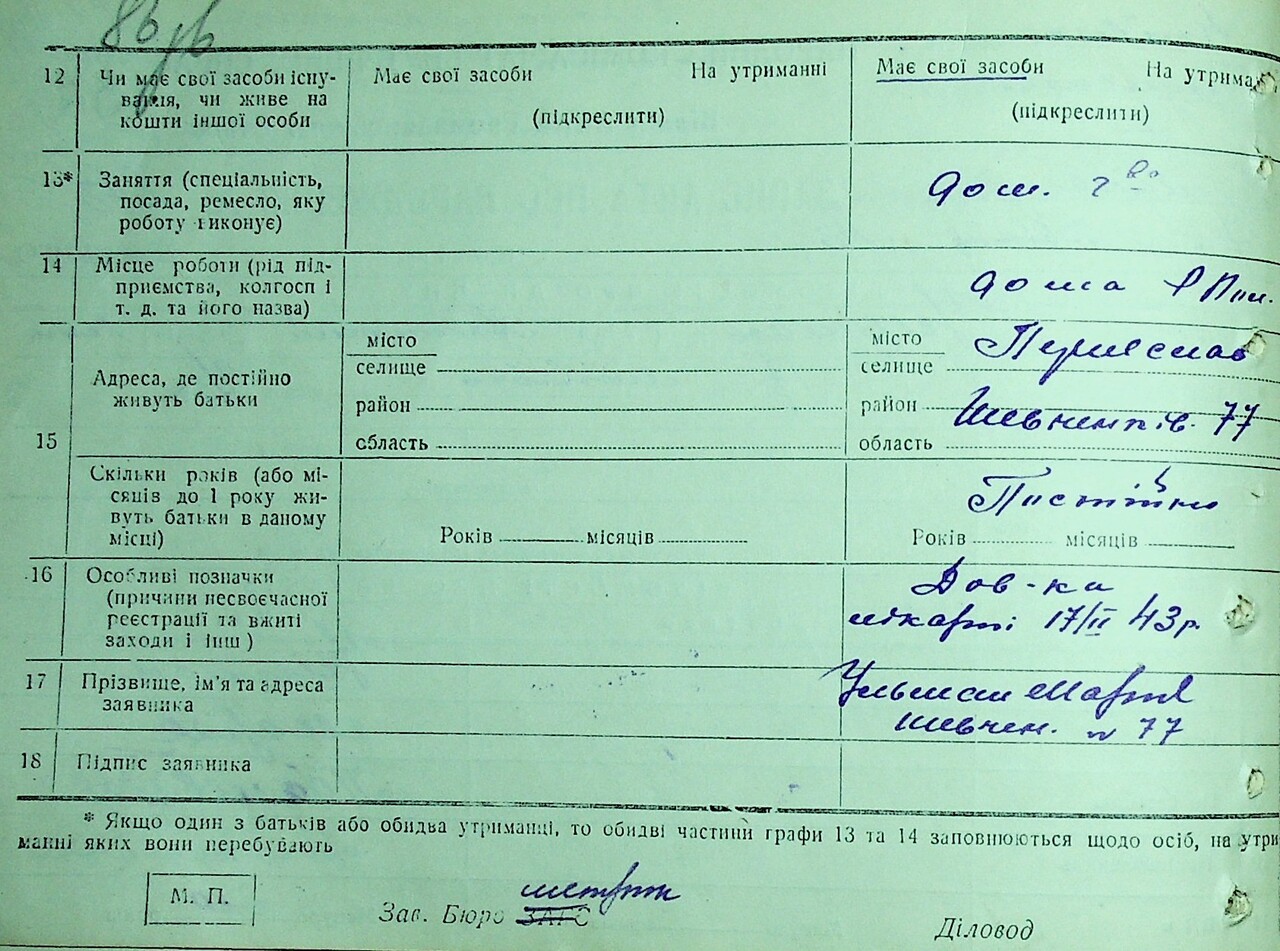 12 Чи має свої засоби існу-
вання, чи живе на
кошти іншої особи
Має свої засоби На утриманні
(підкреслити)
Має свої засоби На утрима
(підкреслити)
13* Заняття (спеціальність,
посада, ремесло, яку
роботу виконує)
дом. г во
14 Місце роботи (рід під-
приємства, колгосп і
т. д. та його назва)
дома
15 Адреса, де постійно
живуть батьки
місто
селище
район
область
місто Переяслав
селище
район Шевченків. 77
область
Скільки років (або мі-
сяців до 1 року жи-
вуть батьки в даному
місці)
Років місяців
Постійно
Років місяців
16 Особливі позначки
(причини несвоєчасної
реєстрації та вжиті
заходи і інш)
Дов-ка
лікарні 17/II 43р.
17 Прізвище, ім'я та адреса
заявника
Ульман Марія
Шевчен. 77
18 Підпис заявника
* Якщо один з батьків або обидва утриманці, то обидві частини графи 13 та 14 заповнюються щодо осіб, на утри
манні яких вони перебувають
М. П.
Зав. Бюро ЗАГС
Діловод